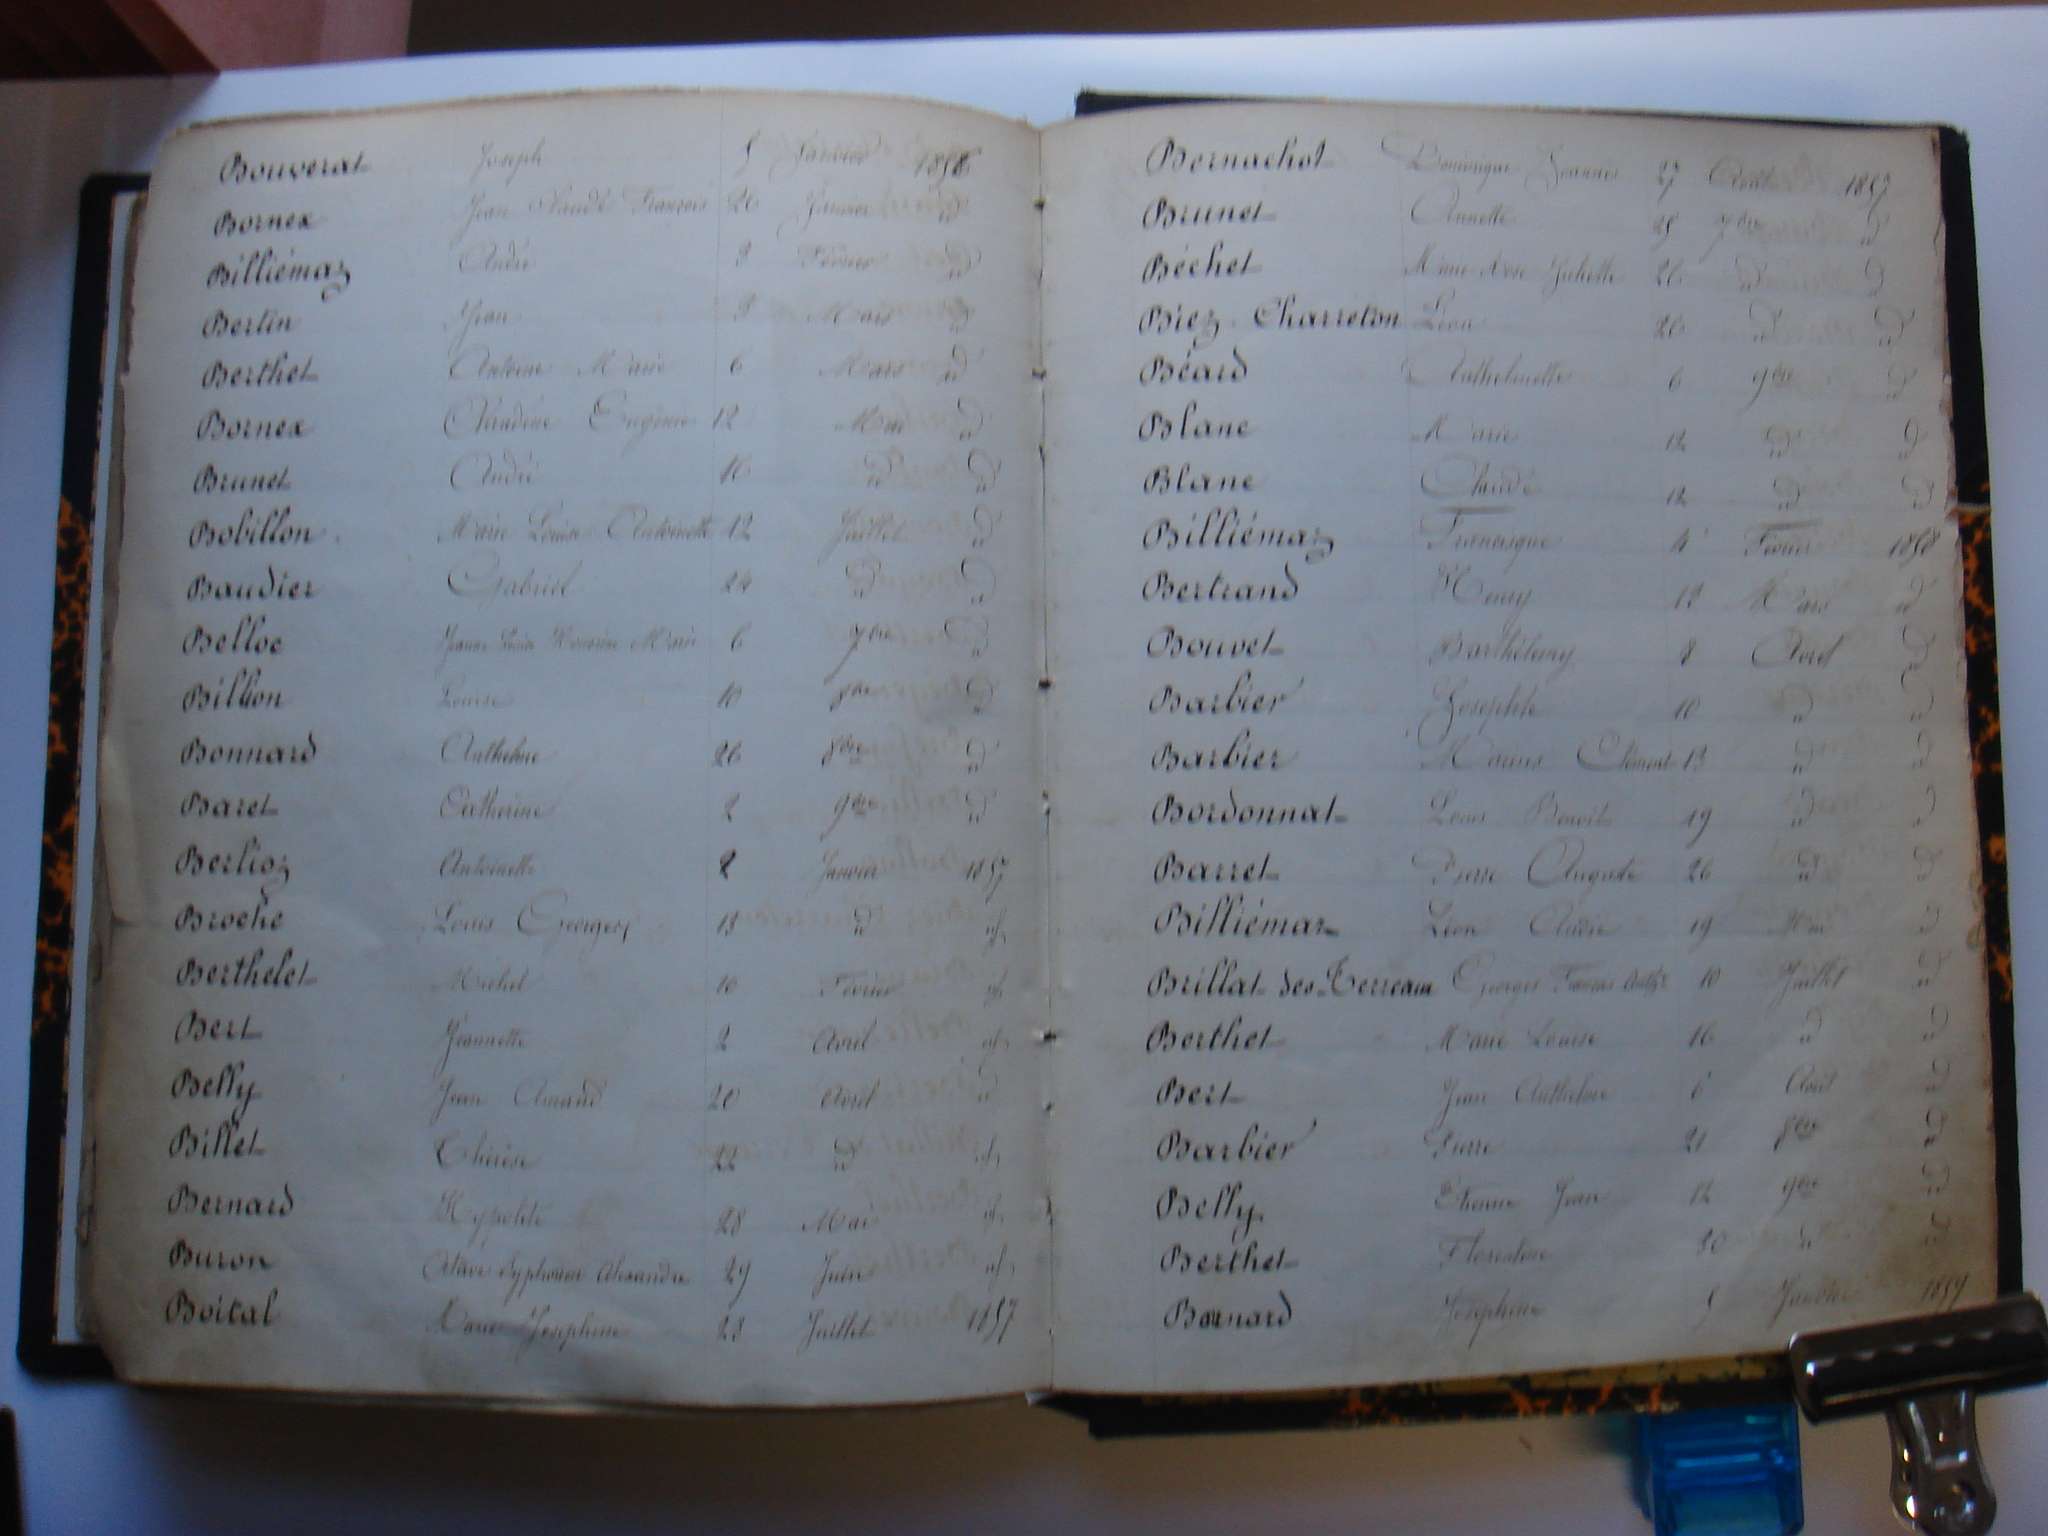 Bouverat Joseph 5 Janvier 1856
Bornex Jean Claude François 26 Janvier d°
Billiémaz André 3 Février d°
Bertin Jean 3 Mars d°
Berthet Antoine Marie 6 Mars d°
Bornex Claudine Eugénie 12 Mai d°
Brunet André 16 d° d°
Bobillon Marie Louise Antoinette 12 Juillet d°
Baudier Gabriel 24 d° d°
Belloc Marie 6 7bre d°
Billion Louise 10 8bre d°
Bonnard Anthelme 26 8bre d°
Baret Catherine 2 9bre d°
Berlioz Antoinette 2 Janvier 1857
Broche Louis Georges 13 d° id
Berthelet Michel 16 Février id
Bert Jeannette 2 Avril id
Belly Jean Amand 20 Avril d°
Billet Thérèse 22 d° id
Bernard Hypolite 28 Mai id
Buron Alexandre 29 Juin id
Boital Marie Josephine 23 Juillet 1857
Bernachot Dominique Joannès 27 Août 1857
Brunet Annette 25 7bre d°
Béchet Marie Juliette 26 d° d°
Biez-Charreton Léon 26 d° d°
Béard Anthelmette 6 9bre d°
Blanc Marie 12 d° d°
Blanc Claude 12 d° d°
Billiémaz Francisque 4 Février 1858
Bertrand Henry 12 Mars d°
Bouvet Barthélemy 8 Avril d°
Barbier Josephte 10 d° d°
Barbier Marius Clément 13 d° d°
Bordonnat Louis Benoit 19 d° d°
Barret Pierre Auguste 26 d° d°
Billiémaz Léon André 19 Mai d°
Brillat des Terreaux Georges François 10 Juillet d°
Berthet Marie Louise 16 d° d°
Bert Jean Anthelme 6 Août d°
Barbier Pierre 21 8bre d°
Belly Etienne Jean 12 9bre d°
Berthet Florentine 30 d° d°
Bernard Joséphine 5 Janvier 1859